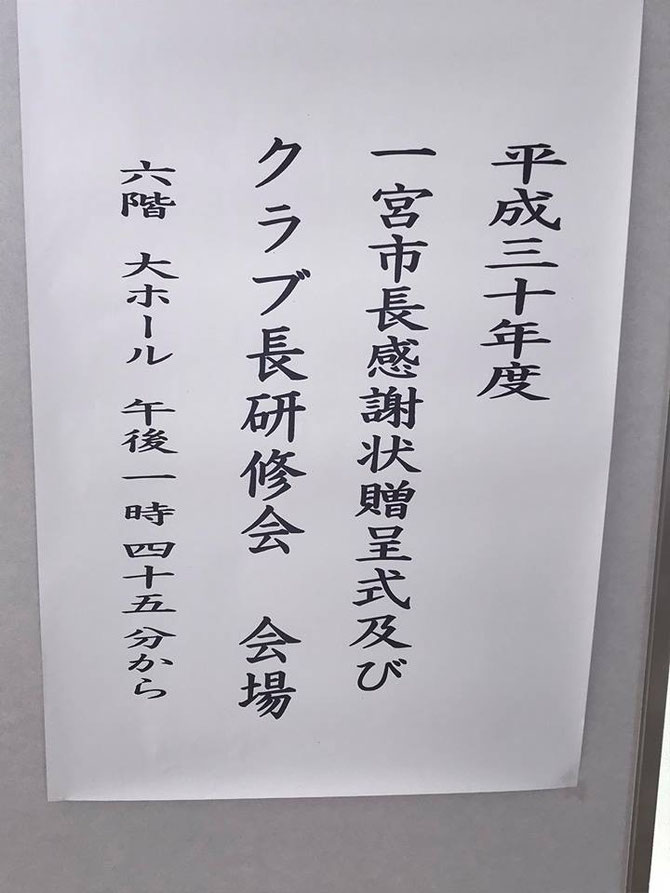 平成三十年度
一宮市長感謝状贈呈式及び
クラブ長研修会　会場
六階　大ホール　午後一時四十五分から